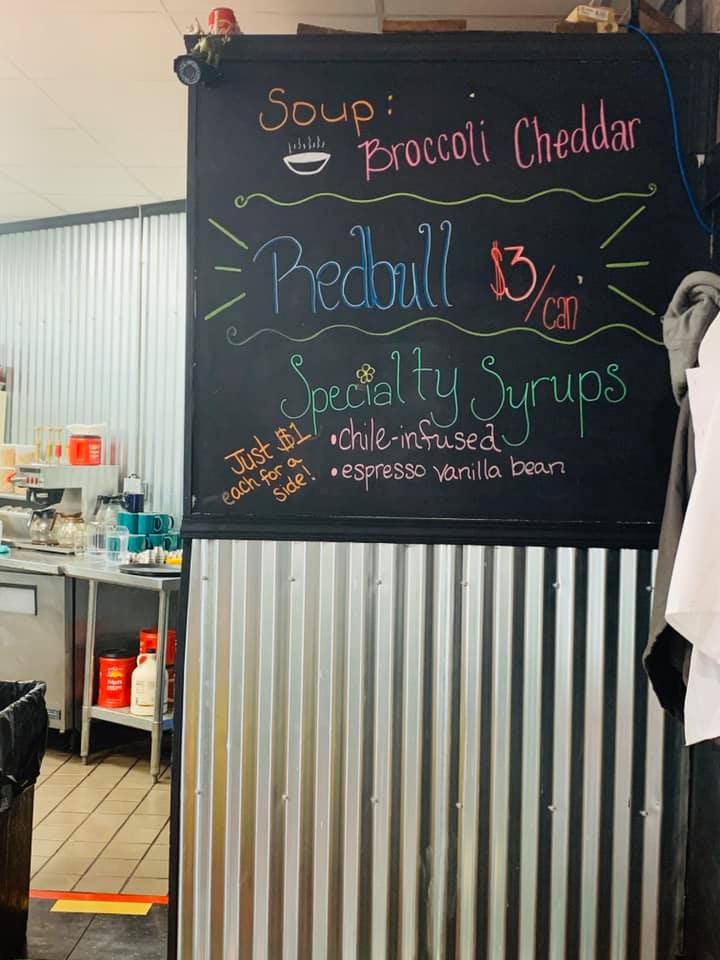 Soup:
Broccoli Cheddar
Redbull $3/can
Specialty Syrups
Just $1
each for a
side!
•chile-infused
•espresso vanilla bean